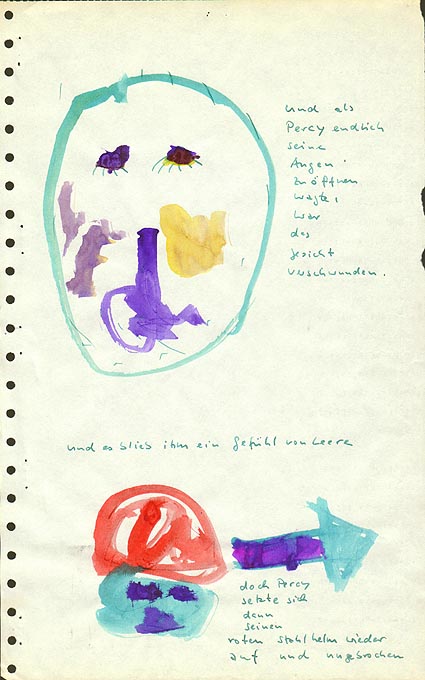 und als
Percy endlich
seine
Augen
zu öffnen
wagte,
war
das
gesicht
verschwunden.
und es blieb ihm ein gefühl von Leere
doch Percy
setzte sich
dann
seinen
roten Stahlhelm wieder
auf und ungebrochen